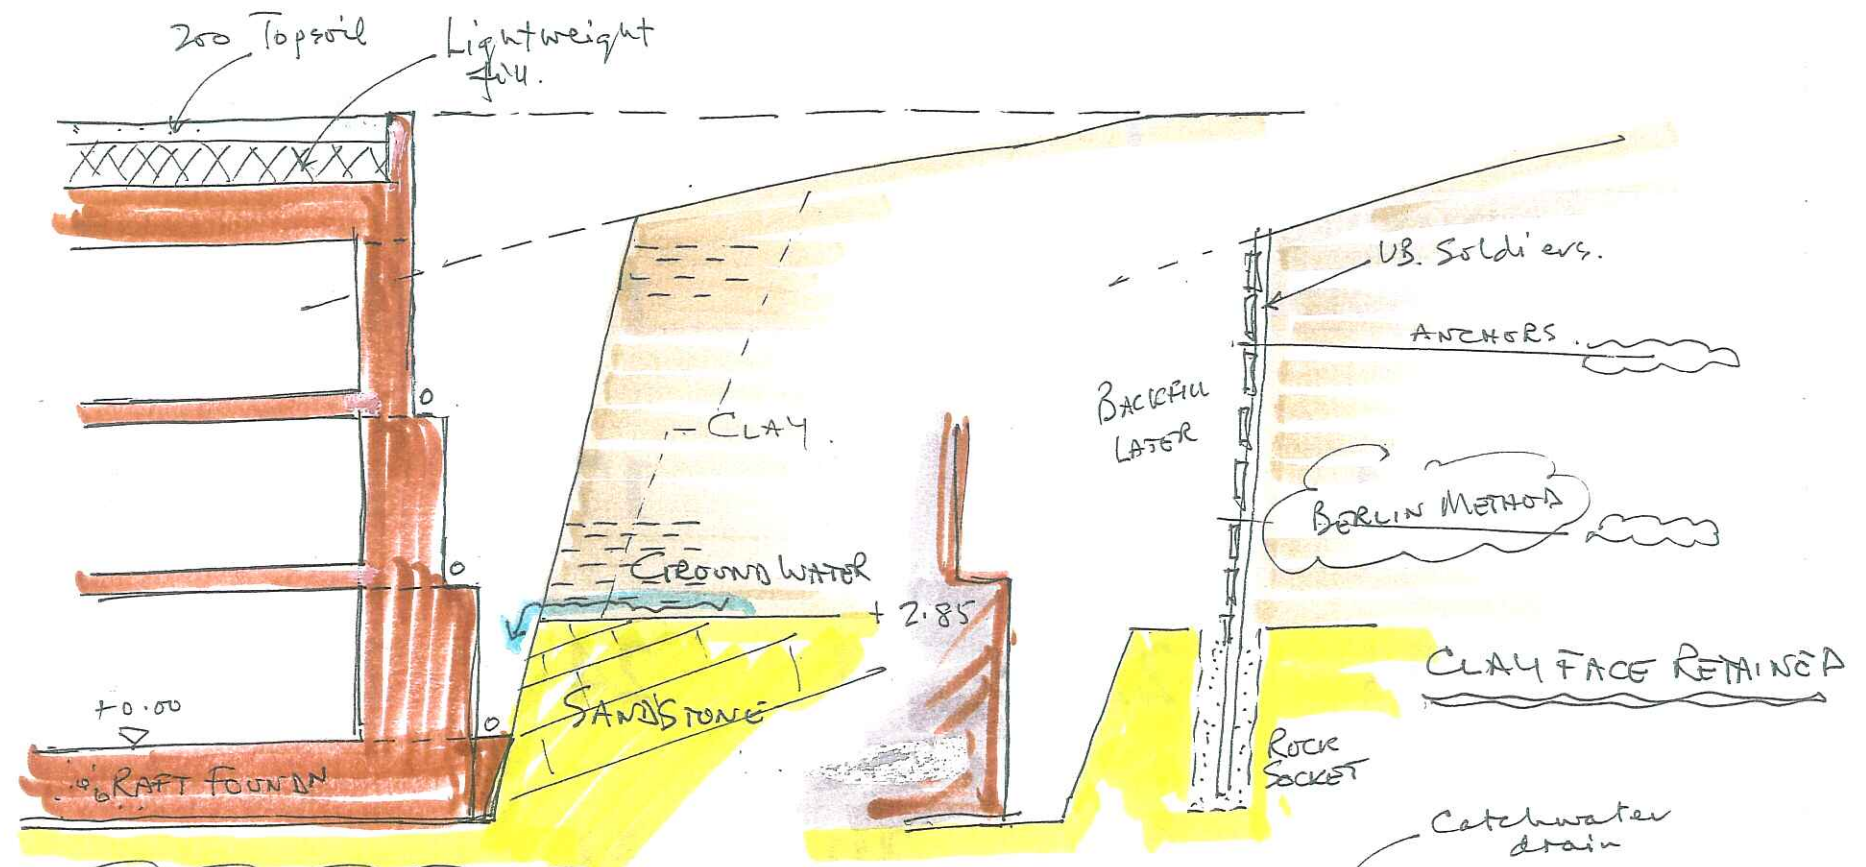 200 Topsoil
Lightweight
fill.
UB. Soldiers.
ANCHORS.
BACKFILL
LATER
CLAY.
BERLIN METHOD
GROUND WATER
+ 2.85
CLAY FACE RETAINED
SANDSTONE
+0.00
RAFT FOUNDN
ROCK
SOCKET
Catchwater
drain